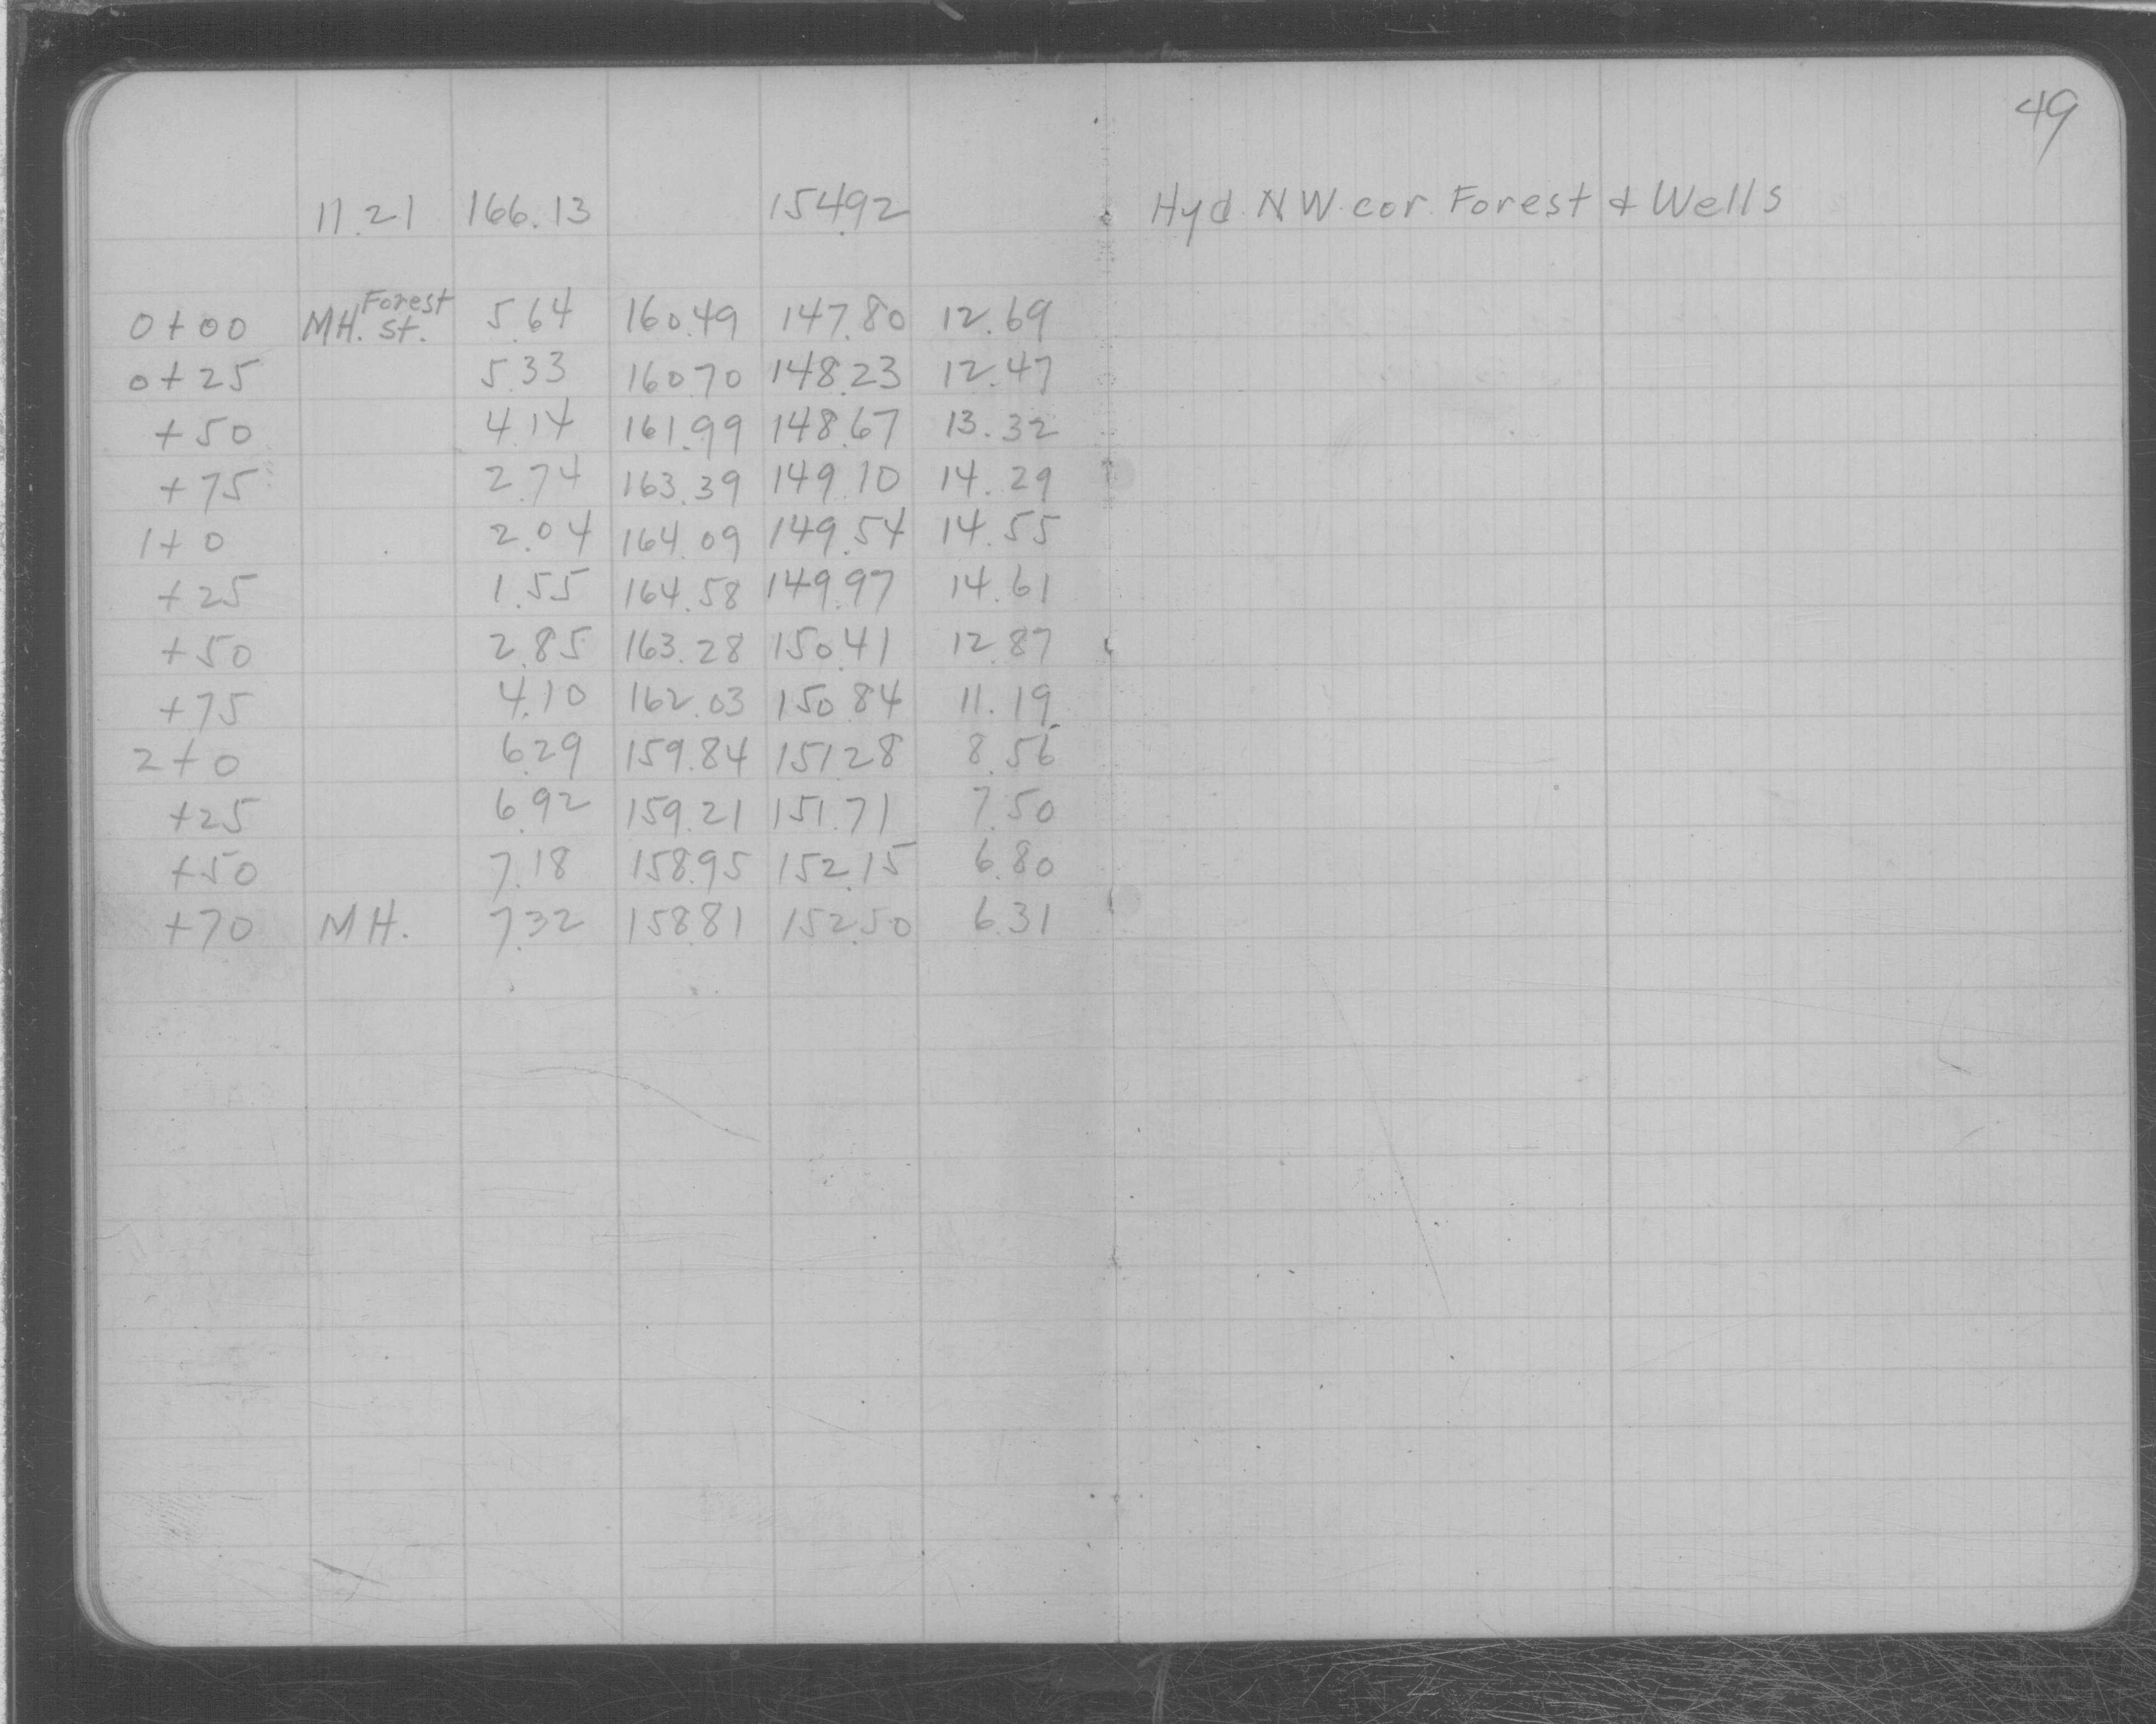 49
11.21 166.13 154.92 Hyd. N W. cor. Forest & Wells
0+00 MH. Forest St. 5.64 160.49 147.80 12.69
0+25 5.33 160 70 148.23 12.47
+50 4.14 161.99 148.67 13.32
+75 2.74 163.39 149.10 14.29
1+0 2.04 164.09 149.54 14.55
+25 1.55 164.58 149.97 14.61
+50 2.85 163.28 150.41 12.87
+75 4.10 162.03 150 84 11.19
2+0 6.29 159.84 151 28 8.56
+25 6.92 159.21 151.71 7.50
+50 7.18 158.95 152.15 6.80
+70 MH. 7.32 158.81 152.50 6.31